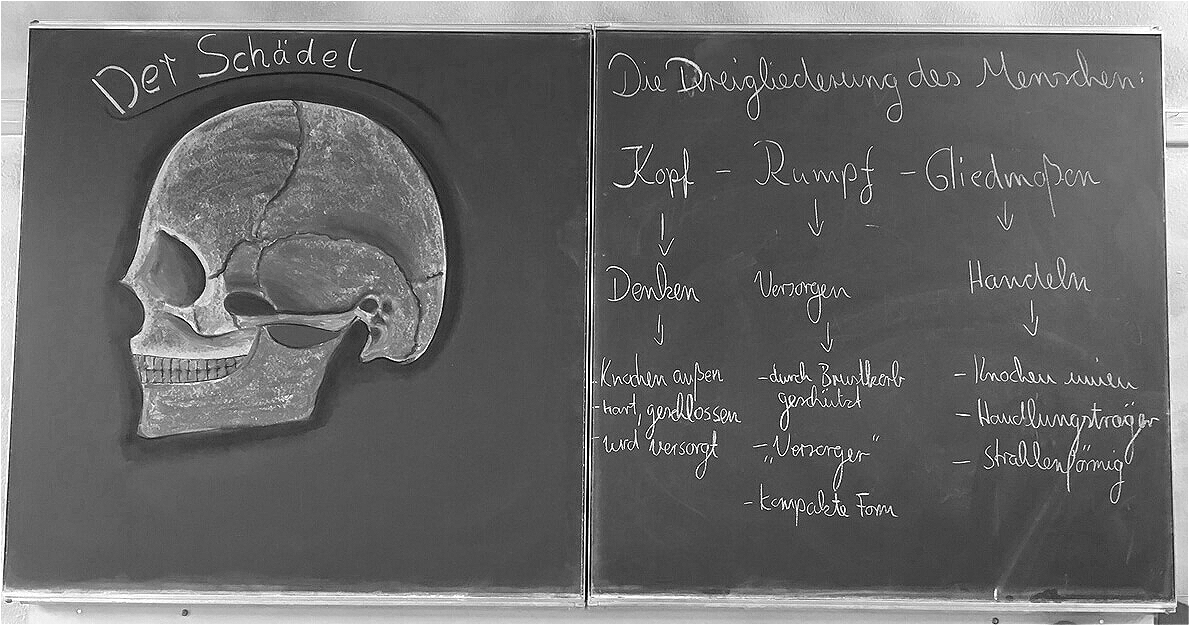 Der Schädel
Die Dreigliederung des Menschen:
Kopf - Rumpf - Gliedmaßen
Denken
Versorgen
Handeln
- Knochen außen
- hart, geschlossen
- wird versorgt
- durch Brustkorb
geschützt
- „Versorger“
- kompakte Form
- Knochen innen
- Handlungsträger
- strahlenförmig